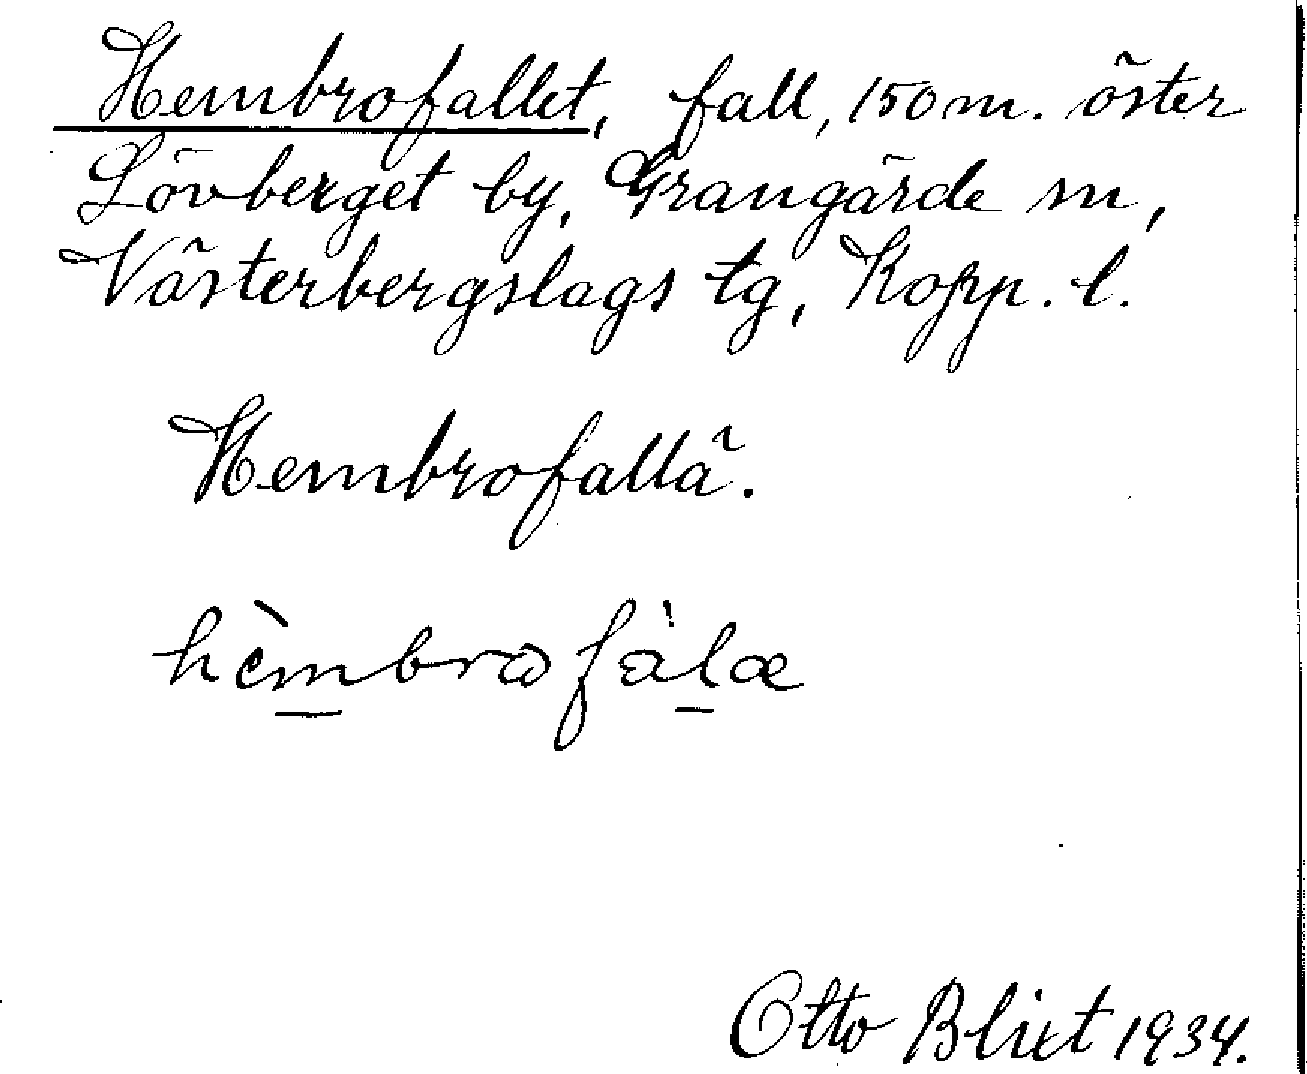 Hembrofallet, fall, 150 m. öster
Lövberget by, Grangärde sn,
Västerbergslags tg, Kopp. l.
Hembrofallä.
hèmbrofàlæ
Otto Blixt 1934.